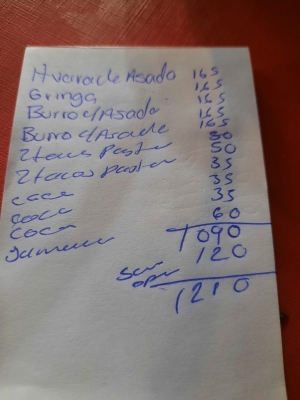 Hvarache Asado 165
Gringa 165
Burro c/Asada 165
Burro c/Asada 165
165
2tacos Pastor 50
2tacos Pastor 50
coca 35
coca 35
coca 35
Jamaica 60
1090
120
1210